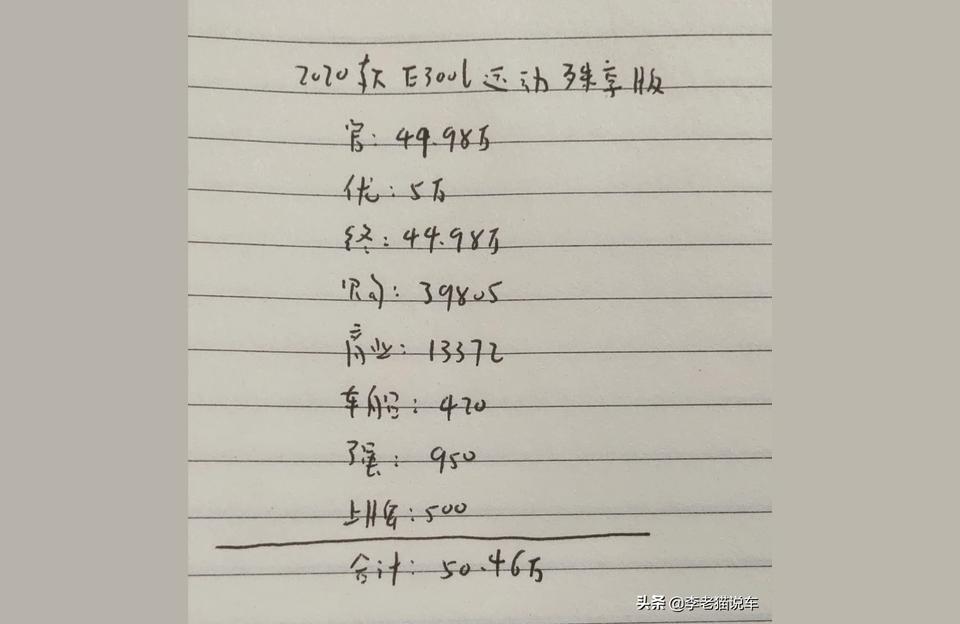 2020款 E300L 运动 殊享版
官: 49.98万
优: 5万
终: 44.98万
购: 39805
商业: 13372
车船: 420
强: 950
上牌: 500
合计: 50.46万
头条 @李老猫说车